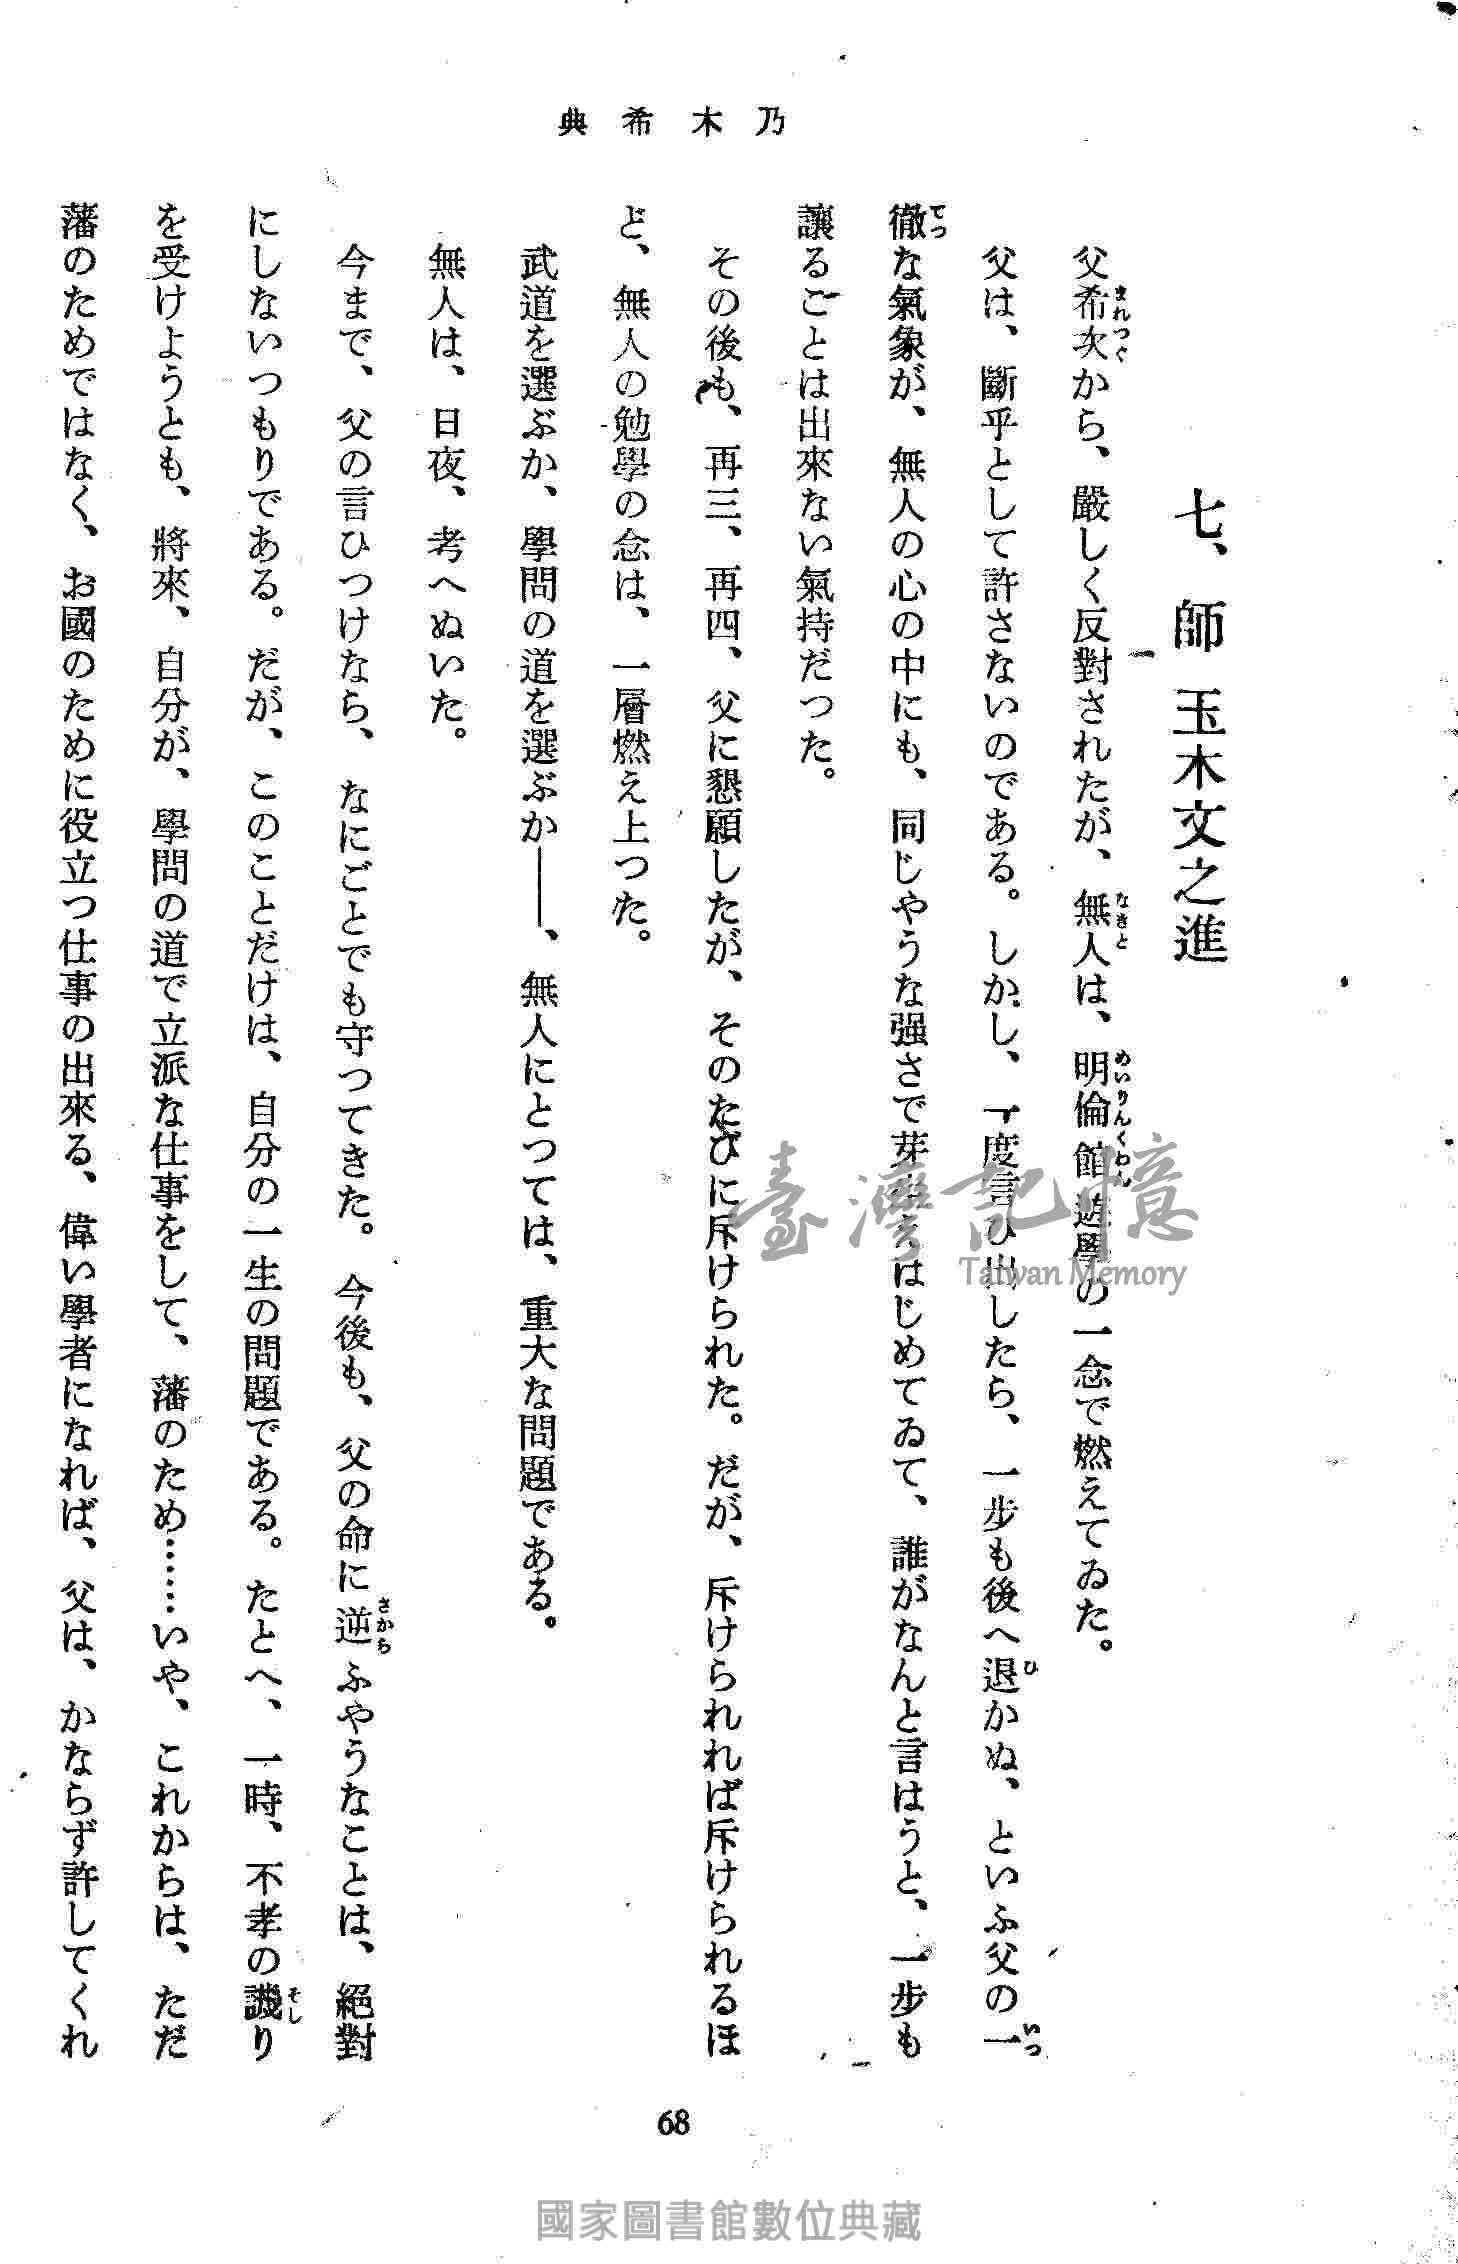 乃木希典
七、師 玉木文之進
父希次から、嚴しく反對されたが、無人は、明倫館遊學の一念で燃えてゐた。
まれつぐ
なきと
めいりんくわん
父は、斷乎として許さないのである。しかし、一度言ひ出したら、一步も後へ退かぬ、といふ父の一
ひ
いつ
徹な氣象が、無人の心の中にも、同じやうな强さで芽生えはじめてゐて、誰がなんと言はうと、一步も
てつ
讓ることは出來ない氣持だつた。
その後も、再三、再四、父に懇願したが、そのたびに斥けられた。だが、斥けられれば斥けられるほ
ど、無人の勉學の念は、一層燃え上つた。
武道を選ぶか、學問の道を選ぶか――、無人にとつては、重大な問題である。
無人は、日夜、考へぬいた。
今まで、父の言ひつけなら、なにごとでも守つてきた。今後も、父の命に逆ふやうなことは、絕對
さから
にしないつもりである。だが、このことだけは、自分の一生の問題である。たとへ、一時、不孝の譏り
そし
を受けようとも、將來、自分が、學問の道で立派な仕事をして、藩のため……いや、これからは、ただ
藩のためではなく、お國のために役立つ仕事の出來る、偉い學者になれば、父は、かならず許してくれ
68
臺灣記憶
Taiwan Memory
國家圖書館數位典藏